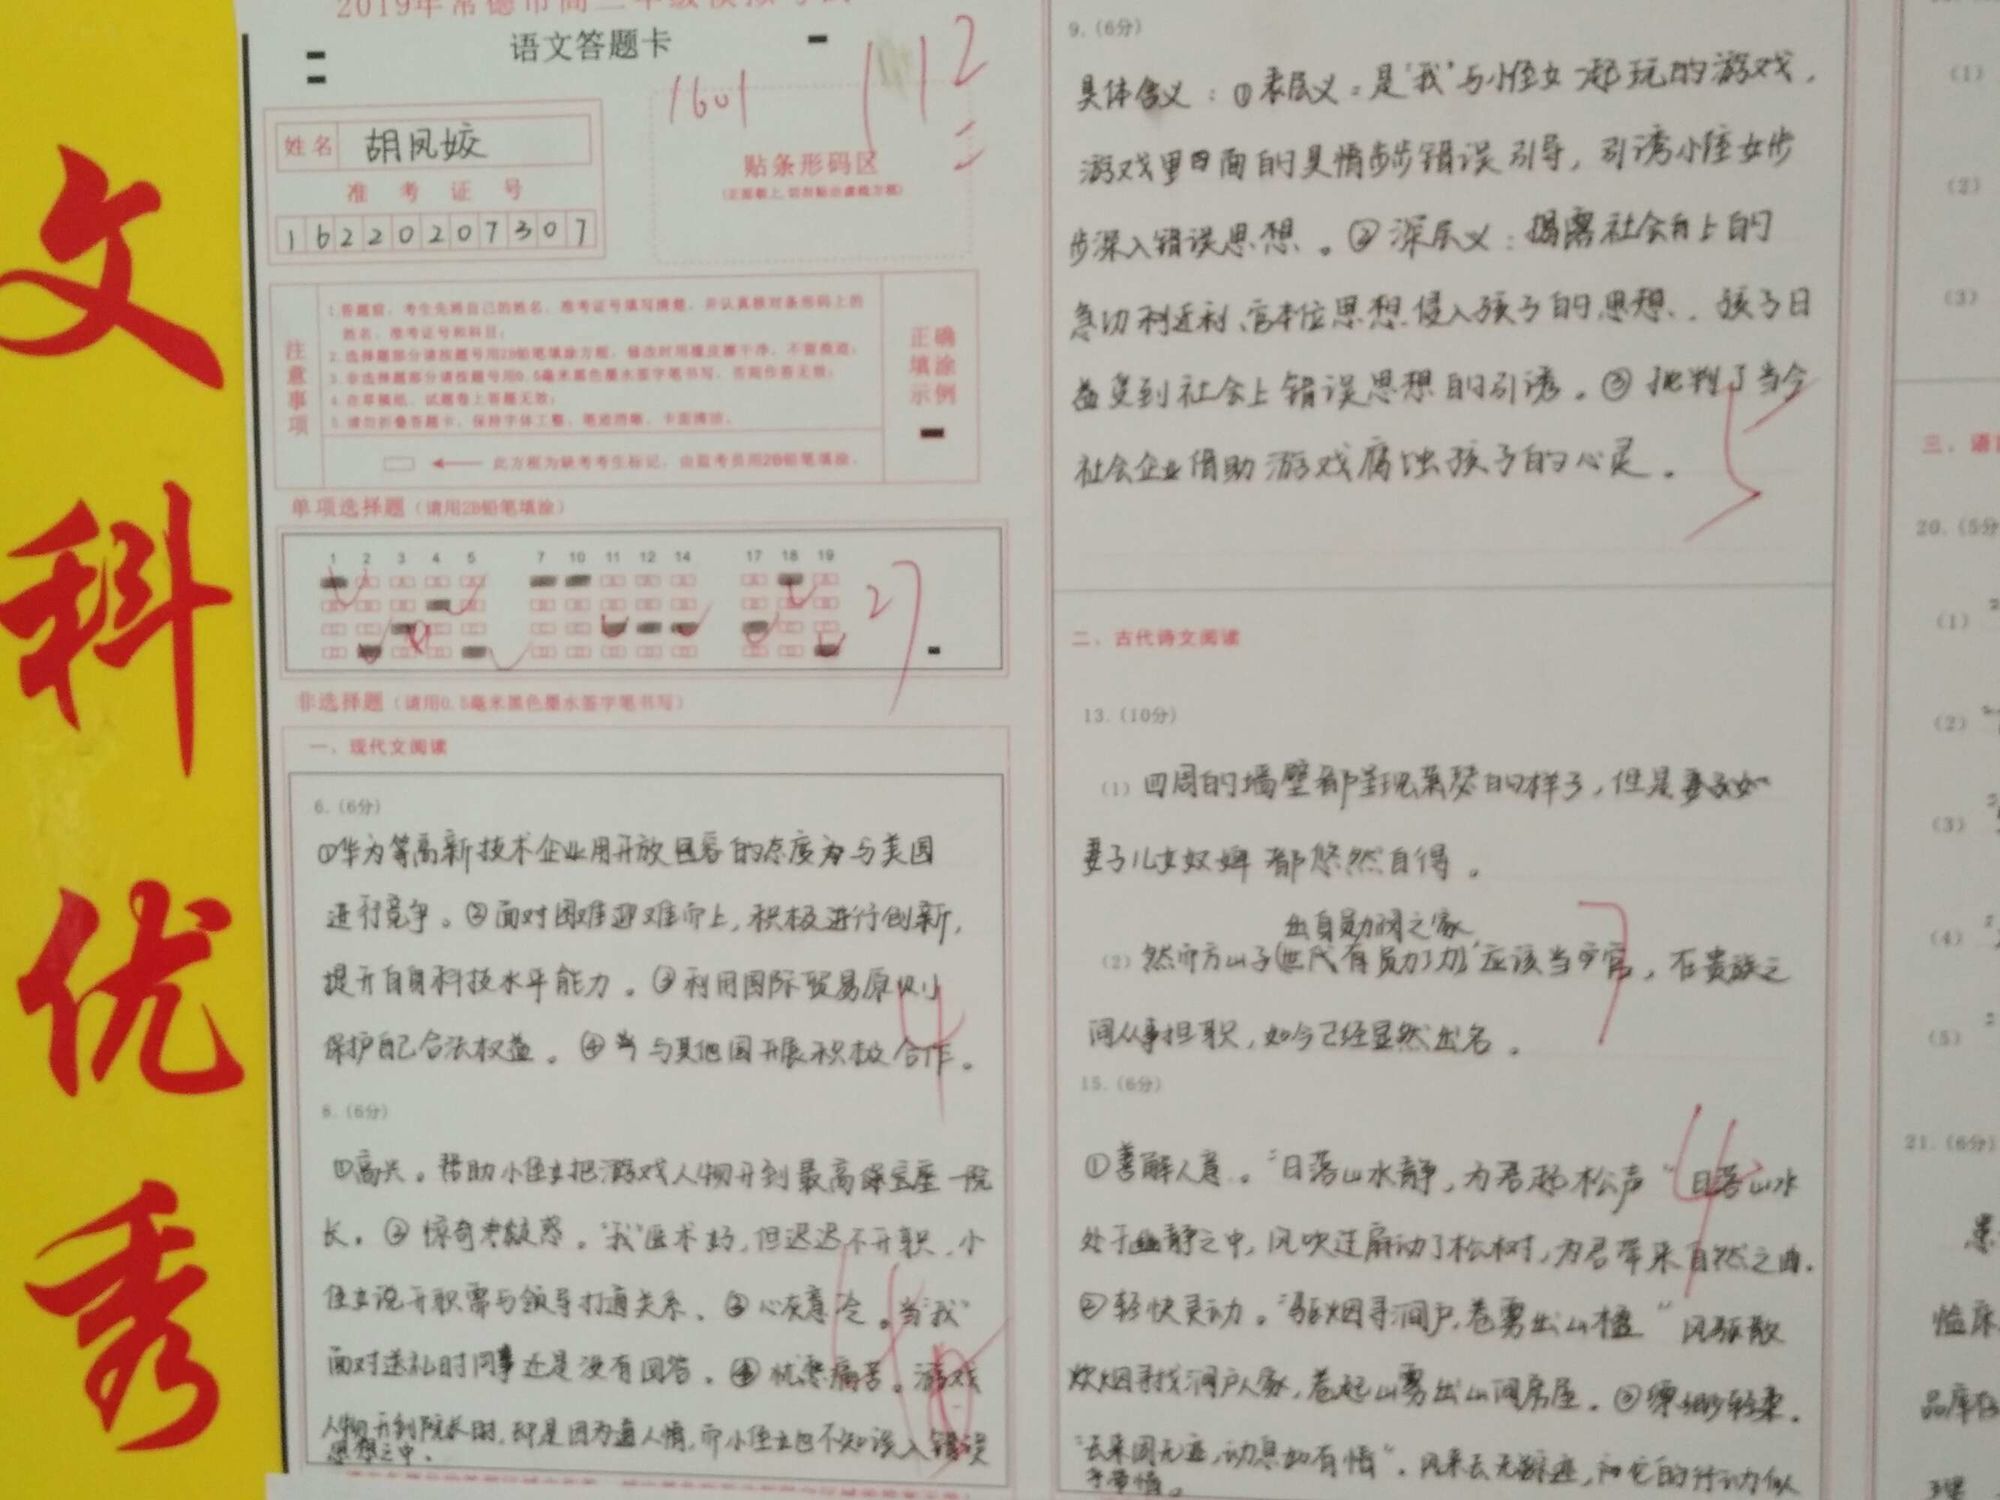 文科优秀
语文答题卡
1601
112
姓名 胡凤姣
准考证号
162202007307
贴条形码区
(正面朝上,切勿贴出虚线方框)
注意事项
1.答题前,考生先将自己的姓名、准考证号填写清楚,并认真核对条形码上的
姓名、准考证号和科目;
2.选择题部分请按题号用2B铅笔填涂方框,修改时用橡皮擦干净,不留痕迹;
3.非选择题部分请按题号用0.5毫米黑色墨水签字笔书写,否则作答无效;
4.在草稿纸、试题卷上答题无效;
5.请勿折叠答题卡,保持字体工整、笔迹清晰、卡面清洁。
正确填涂示例
此方框为缺考考生标记,由监考员用2B铅笔填涂。
单项选择题(请用2B铅笔填涂)
1 2 3 4 5 7 10 11 12 14 17 18 19
27
非选择题(请用0.5毫米黑色墨水签字笔书写)
一、现代文阅读
6.(6分)
①华为等高新技术企业用开放包容的态度与美国
进行竞争。②面对困难迎难而上,积极进行创新,
提升自身科技水平能力。③利用国际贸易原则
保护自己合法权益。④与其他国开展积极合作。
4
8.(6分)
①高兴。帮助小侄女把游戏人物升到最高宝座—院
长。②惊奇疑惑。"我"医术好,但迟迟不升职,小
侄女说升职需与领导打通关系。③心灰意冷。当"我"
面对送礼时同事还是没有回答。④忧虑痛苦。游戏
人物升到院长时,却是因为通人情,而小侄女也不知误入错误
思想之中。
9.(6分)
具体含义:①表层义:是"我"与小侄女一起玩的游戏,
游戏里面的具情步步错误引导,引诱小侄女步
步深入错误思想。②深层义:揭露社会上的
急功利近利、官本位思想侵入孩子的思想,孩子日
益受到社会上错误思想的引诱。③批判了当今
社会企业借助游戏腐蚀孩子的心灵。
5
二、古代诗文阅读
13.(10分)
(1)四周的墙壁都呈现萧瑟的样子,但是
妻子儿女奴婢都悠然自得。
出身勋阀之家
(2)然而方山子世代有勋功,应该当官,在贵族之
间从事担职,如今已经显然出名。
7
15.(6分)
①善解人意。"日落山水静,为君起松声"日落山水
处于幽静之中,风吹过扇动了松树,为君带来自然之曲。
②轻快灵动。"驱烟寻涧户,卷雾出山楹"风驱散
炊烟寻找涧户人家,卷起山雾出山间房屋。③缥缈轻柔。
"去来固无迹,动息如有情",风来去无踪迹,而它的行动似
乎带情。
4
(1)
(2)
(3)
20.(5分
(1)
(2)
(3)
(4)
(5)
21.(6分)
临床
品库存